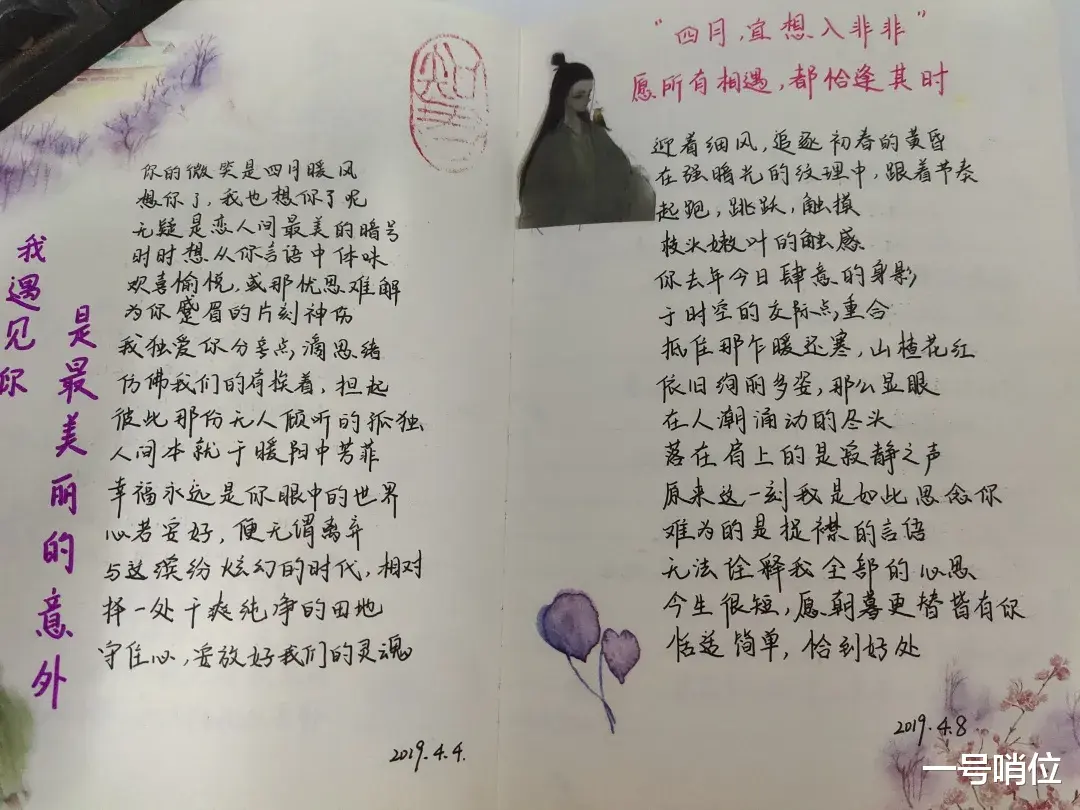 我遇见你
是最美丽的意外
你的微笑是四月暖风
想你了，我也想你了呢
无疑是恋人间最美的暗号
时时想从你言语中体味
欢喜愉悦，或那忧思难解
为你蹙眉的片刻神伤
我独爱你分享点滴思绪
仿佛我们的肩挨着，担起
彼此那份无人倾听的孤独
人间本就于暖阳中芳菲
幸福永远是你眼中的世界
心若安好，便无谓离弃
与这缤纷炫幻的时代，相对
择一处干爽纯净的田地
守住心，安放好我们的灵魂
2019.4.4.
"四月，宜想入非非"
愿所有相遇，都恰逢其时
迎着细风，追逐初春的黄昏
在强暗光的纹理中，跟着节奏
起跑，跳跃，触摸
枝头嫩叶的触感
你去年今日肆意的身影
于时空的交际点重合
抵住那乍暖还寒，山楂花红
依旧绚丽多姿，那么显眼
在人潮涌动的尽头
落在肩上的是寂静之声
原来这一刻我是如此思念你
难为的是捉襟的言语
无法诠释我全部的心思
今生很短，愿朝暮更替皆有你
恬淡简单，恰到好处
2019.4.8
一号哨位